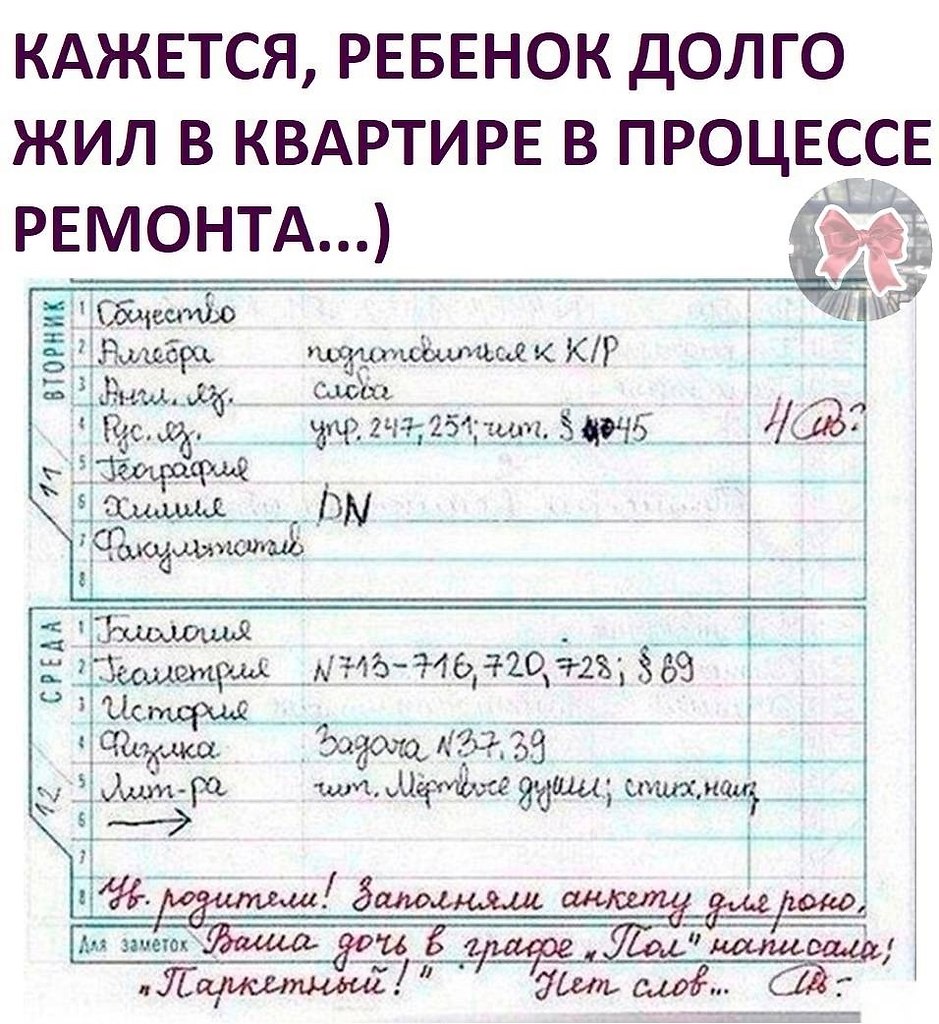 КАЖЕТСЯ, РЕБЕНОК ДОЛГО
ЖИЛ В КВАРТИРЕ В ПРОЦЕССЕ
РЕМОНТА...)
ВТОРНИК
11
1 Общество
2 Алгебра подготовиться к К/Р
3 Англ. яз. слова
4 Рус. яз. упр. 247, 251; чит. § 45 4
5 География
6 Химия DN
7 Факультатив
8
СРЕДА
12
1 Биология
2 Геометрия N713-716, 720, 728; § 69
3 История
4 Физика Задача N37, 39
5 Лит-ра чит. Мёртвые души; стих. наиз
6 →
7
8 Ув. родители! Заполняли анкету для роно.
Для заметок Ваша дочь в графе „Пол" написала:
„Паркетный!" Нет слов...